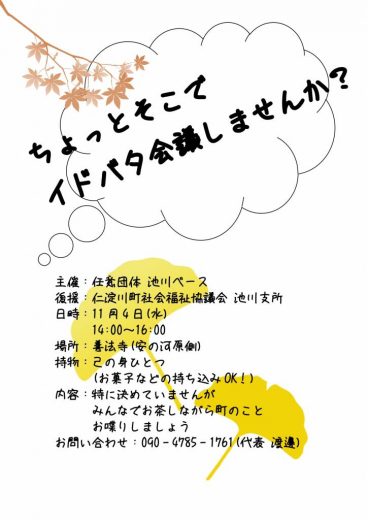 ちょっとそこで
イドバタ会議しませんか?
主催:任意団体 池川ベース
後援:仁淀川町社会福祉協議会 池川支所
日時:11月4日(水)
14:00～16:00
場所:善法寺(安の河原側)
持物:己の身ひとつ
(お菓子などの持ち込みOK!)
内容:特に決めていませんが
みんなでお茶しながら町のこと
お喋りしましょう
お問い合わせ:090-4785-1761(代表 渡邉)